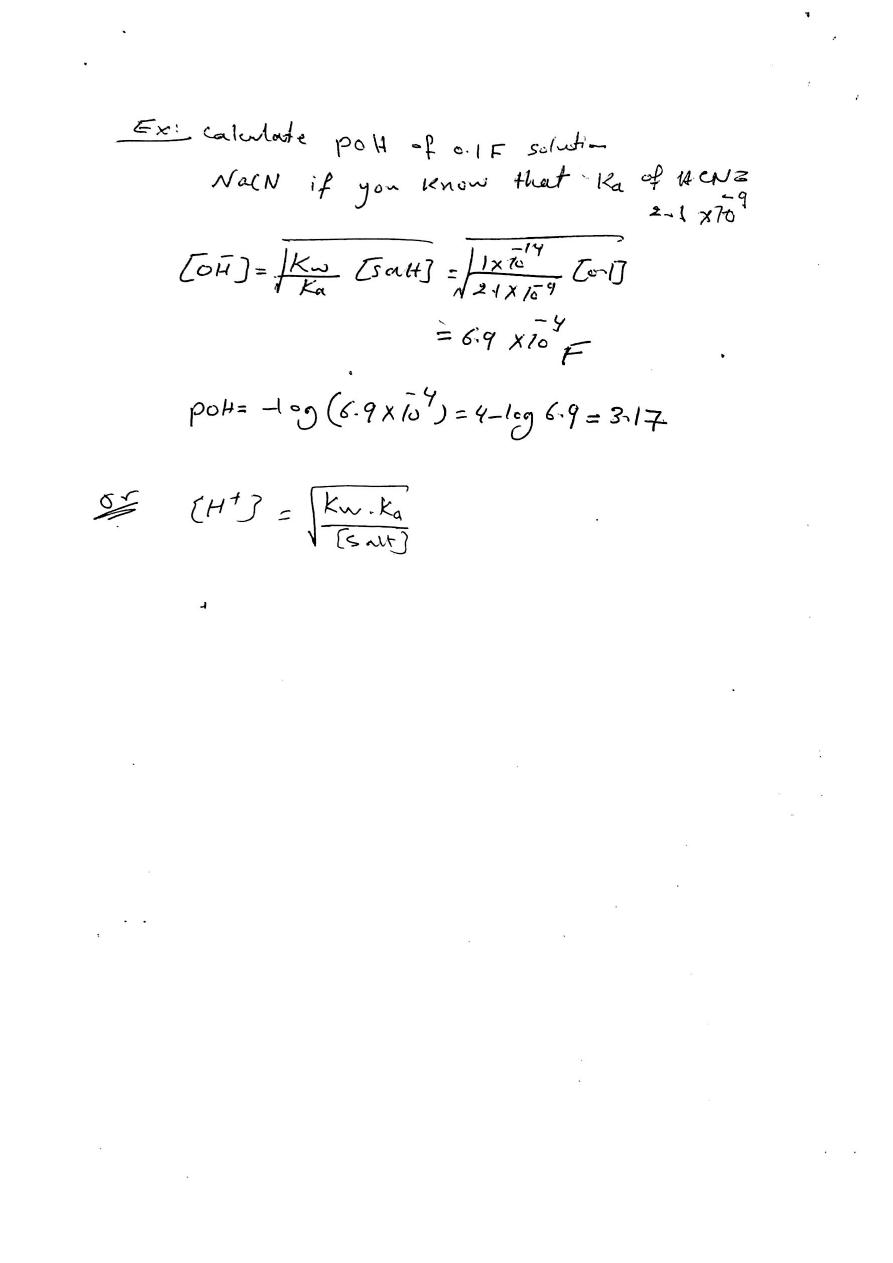 Ex: calculate pOH of 0.1 F solution
NaCN if you know that Ka of HCN =
2.1 x10⁻⁹
[OH⁻] = √(Kw/Ka [salt]) = √(1x10⁻¹⁴/2.1x10⁻⁹ [0.1])
= 6.9 x10⁻⁴ F
pOH = -log (6.9 x 10⁻⁴) = 4-log 6.9 = 3.17
or [H⁺] = √(Kw.Ka/[salt])